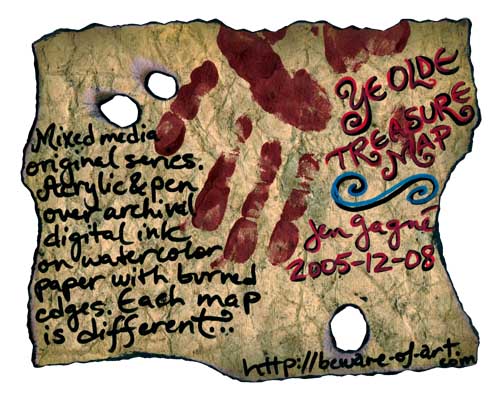 YE OLDE
TREASURE
MAP
Jen Gagné
2005-12-08
Mixed media
original series.
Acrylic & pen
over archival
digital ink
on watercolor
paper with burned
edges. Each map
is different...
http://beware-of-art.
com